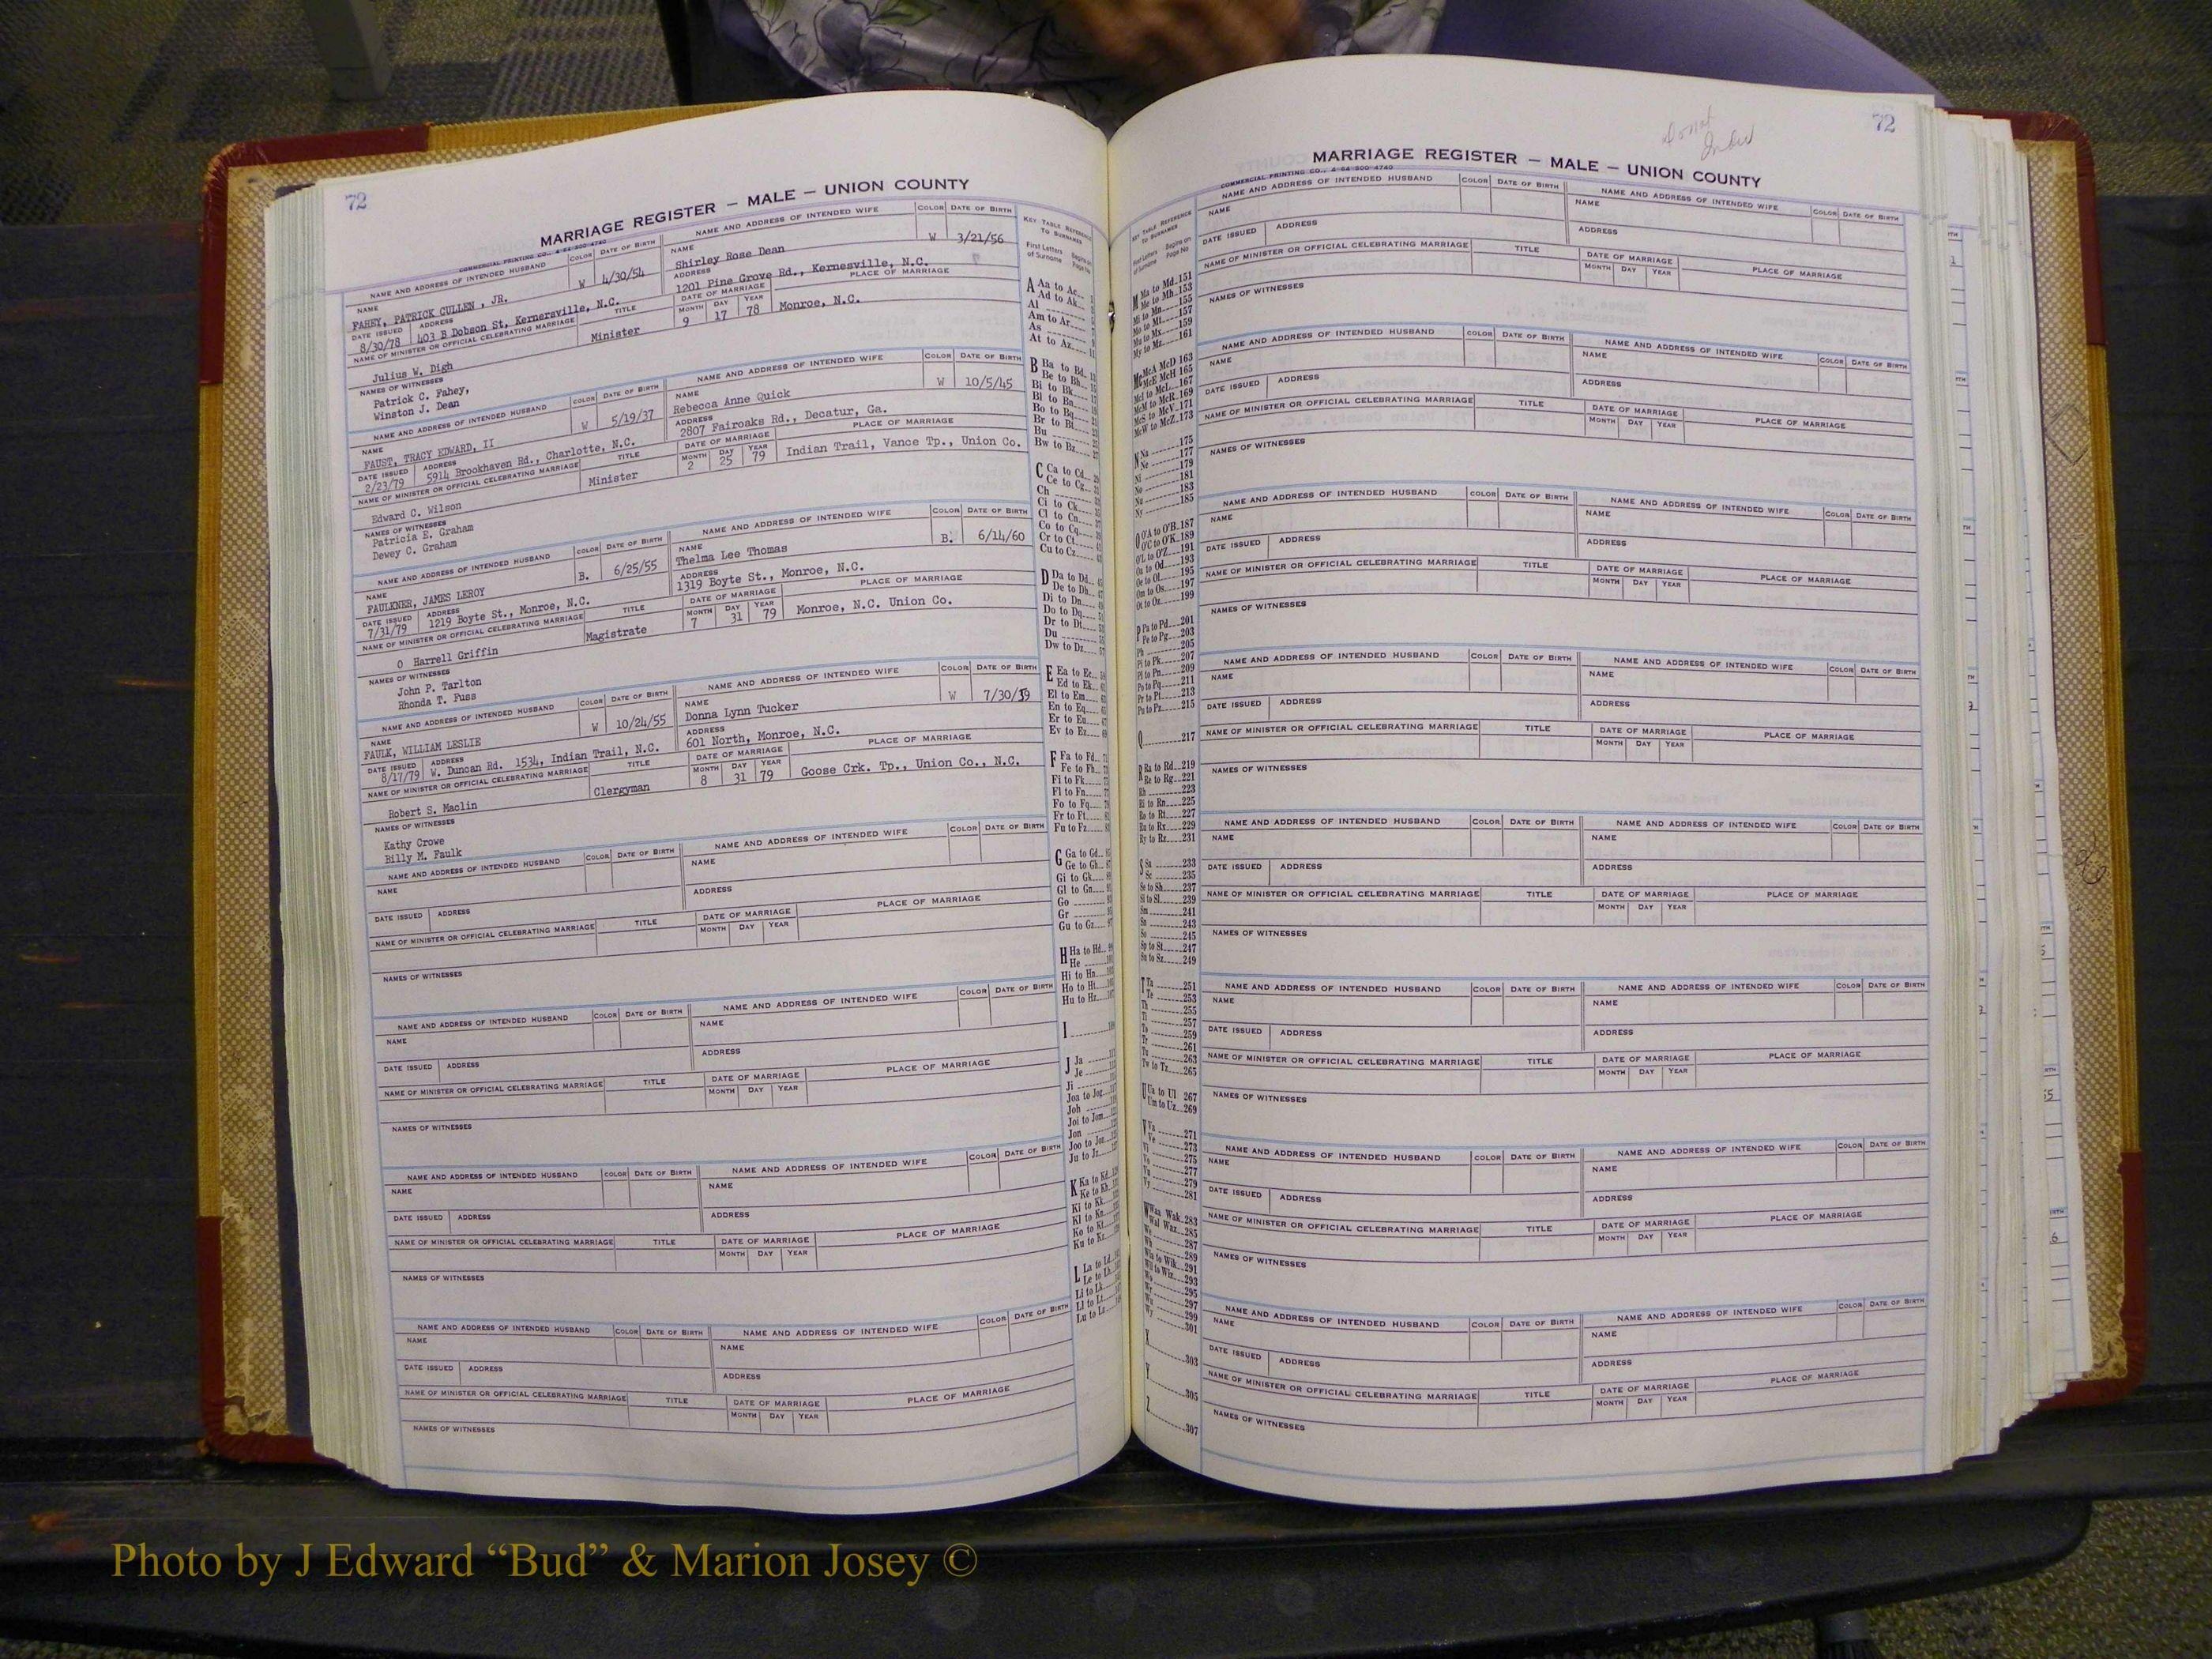 72
MARRIAGE REGISTER — MALE — UNION COUNTY
COMMERCIAL PRINTING CO., 4-64-500-4740
NAME AND ADDRESS OF INTENDED HUSBAND COLOR DATE OF BIRTH NAME AND ADDRESS OF INTENDED WIFE COLOR DATE OF BIRTH
NAME FAHEY, PATRICK CULLEN , JR. W 4/30/54 NAME Shirley Rose Dean W 3/21/56
DATE ISSUED 8/30/78 ADDRESS 403 B Dobson St, Kernersville, N.C. ADDRESS 1201 Pine Grove Rd., Kernesville, N.C.
NAME OF MINISTER OR OFFICIAL CELEBRATING MARRIAGE TITLE DATE OF MARRIAGE MONTH DAY YEAR PLACE OF MARRIAGE
Julius W. Digh Minister 9 17 78 Monroe, N.C.
NAMES OF WITNESSES
Patrick C. Fahey,
Winston J. Dean
NAME AND ADDRESS OF INTENDED HUSBAND COLOR DATE OF BIRTH NAME AND ADDRESS OF INTENDED WIFE COLOR DATE OF BIRTH
NAME FAUST, TRACY EDWARD, II W 5/19/37 NAME Rebecca Anne Quick W 10/5/45
DATE ISSUED 2/23/79 ADDRESS 5914 Brookhaven Rd., Charlotte, N.C. ADDRESS 2807 Fairoaks Rd., Decatur, Ga.
NAME OF MINISTER OR OFFICIAL CELEBRATING MARRIAGE TITLE DATE OF MARRIAGE MONTH DAY YEAR PLACE OF MARRIAGE
Edward C. Wilson Minister 2 25 79 Indian Trail, Vance Tp., Union Co.
NAMES OF WITNESSES
Patricia E. Graham
Dewey C. Graham
NAME AND ADDRESS OF INTENDED HUSBAND COLOR DATE OF BIRTH NAME AND ADDRESS OF INTENDED WIFE COLOR DATE OF BIRTH
NAME FAULKNER, JAMES LEROY B. 6/25/55 NAME Thelma Lee Thomas B. 6/14/60
DATE ISSUED 7/31/79 ADDRESS 1219 Boyte St., Monroe, N.C. ADDRESS 1319 Boyte St., Monroe, N.C.
NAME OF MINISTER OR OFFICIAL CELEBRATING MARRIAGE TITLE DATE OF MARRIAGE MONTH DAY YEAR PLACE OF MARRIAGE
O Harrell Griffin Magistrate 7 31 79 Monroe, N.C. Union Co.
NAMES OF WITNESSES
John P. Tarlton
Rhonda T. Fuss
NAME AND ADDRESS OF INTENDED HUSBAND COLOR DATE OF BIRTH NAME AND ADDRESS OF INTENDED WIFE COLOR DATE OF BIRTH
NAME FAULK, WILLIAM LESLIE W 10/24/55 NAME Donna Lynn Tucker W 7/30/59
DATE ISSUED 8/17/79 ADDRESS W. Duncan Rd. 1534, Indian Trail, N.C. ADDRESS 601 North, Monroe, N.C.
NAME OF MINISTER OR OFFICIAL CELEBRATING MARRIAGE TITLE DATE OF MARRIAGE MONTH DAY YEAR PLACE OF MARRIAGE
Robert S. Maclin Clergyman 8 31 79 Goose Crk. Tp., Union Co., N.C.
NAMES OF WITNESSES
Kathy Crowe
Billy M. Faulk
NAME AND ADDRESS OF INTENDED HUSBAND COLOR DATE OF BIRTH NAME AND ADDRESS OF INTENDED WIFE COLOR DATE OF BIRTH
NAME NAME
DATE ISSUED ADDRESS ADDRESS
NAME OF MINISTER OR OFFICIAL CELEBRATING MARRIAGE TITLE DATE OF MARRIAGE MONTH DAY YEAR PLACE OF MARRIAGE
NAMES OF WITNESSES
NAME AND ADDRESS OF INTENDED HUSBAND COLOR DATE OF BIRTH NAME AND ADDRESS OF INTENDED WIFE COLOR DATE OF BIRTH
NAME NAME
DATE ISSUED ADDRESS ADDRESS
NAME OF MINISTER OR OFFICIAL CELEBRATING MARRIAGE TITLE DATE OF MARRIAGE MONTH DAY YEAR PLACE OF MARRIAGE
NAMES OF WITNESSES
NAME AND ADDRESS OF INTENDED HUSBAND COLOR DATE OF BIRTH NAME AND ADDRESS OF INTENDED WIFE COLOR DATE OF BIRTH
NAME NAME
DATE ISSUED ADDRESS ADDRESS
NAME OF MINISTER OR OFFICIAL CELEBRATING MARRIAGE TITLE DATE OF MARRIAGE MONTH DAY YEAR PLACE OF MARRIAGE
NAMES OF WITNESSES
NAME AND ADDRESS OF INTENDED HUSBAND COLOR DATE OF BIRTH NAME AND ADDRESS OF INTENDED WIFE COLOR DATE OF BIRTH
NAME NAME
DATE ISSUED ADDRESS ADDRESS
NAME OF MINISTER OR OFFICIAL CELEBRATING MARRIAGE TITLE DATE OF MARRIAGE MONTH DAY YEAR PLACE OF MARRIAGE
NAMES OF WITNESSES
KEY TABLE REFERENCE
TO SURNAMES
First Letters of Surname Begins on Page No
A Aa to Ac
Ad to Ak
Al
Am to Ar
As
At to Az
B Ba to Bd
Be to Bh
Bi to Bk
Bl to Bn
Bo to Bq
Br to Bt
Bu
Bw to Bz
C Ca to Cd
Ce to Cg
Ch
Ci to Ck
Cl to Cn
Co to Cq
Cr to Ct
Cu to Cz
D Da to Dd
De to Dh
Di to Dn
Do to Dq
Dr to Dt
Du
Dw to Dz
E Ea to Ec
Ed to Ek
El to Em
En to Eq
Er to Eu
Ev to Ez
F Fa to Fd
Fe to Fh
Fi to Fk
Fl to Fn
Fo to Fq
Fr to Ft
Fu to Fz
G Ga to Gd
Ge to Gh
Gi to Gk
Gl to Gn
Go
Gr
Gu to Gz
H Ha to Hd
He
Hi to Hn
Ho to Ht
Hu to Hz
I
J Ja
Je
Ji
Joa to Jog
Joh
Joi to Jom
Jon
Joo to Joz
Ju to Jz
K Ka to Kd
Ke to Kh
Ki to Kk
Kl to Kn
Ko to Kt
Ku to Kz
L La to Ld
Le to Lh
Li to Lk
Ll to Lt
Lu to Lz
72
MARRIAGE REGISTER — MALE — UNION COUNTY
COMMERCIAL PRINTING CO., 4-64-500-4740
KEY TABLE REFERENCE
TO SURNAMES
First Letters of Surname Begins on Page No
M Ma to Md 151
Me to Mh 153
Mi to Mn 155
Mo to Mt 157
Mu to Mx 159
My to Mz 161
Mc McA McD 163
McE McH 165
McI to McL 167
McM to McR 169
McS to McV 171
McW to McZ 173
N Na 175
Ne 177
Ni 179
No 183
Nu 185
O O'A to O'B 187
O'C to O'K 189
O'L to O'Z 191
Oa to Od 193
Oe to Ol 195
Om to Os 197
Ot to Oz 199
P Pa to Pd 201
Pe to Pg 203
Ph 205
Pi to Pk 207
Pl to Pn 209
Po to Pq 211
Pr to Pt 213
Pu to Pz 215
Q 217
R Ra to Rd 219
Re to Rg 221
Rh 223
Ri to Rn 225
Ro to Rt 227
Ru to Rx 229
Ry to Rz 231
S Sa 233
Sc 235
Se to Sh 237
Si to Sl 239
Sm 241
Sn 243
So 245
Sp to St 247
Su to Sz 249
T Ta 251
Te 253
Th 255
Ti 257
To 259
Tr 261
Tu 263
Tw to Tz 265
U Ua to Ul 267
Um to Uz 269
V Va 271
Ve 273
Vi 275
Vo 277
Vu 279
Vy 281
W Waa Wak 283
Wal Waz 285
We 287
Wh 289
Wia to Wik 291
Wil to Wiz 293
Wo 295
Wr 297
Wu 299
Wy 301
X 303
Y 305
Z 307
NAME AND ADDRESS OF INTENDED HUSBAND COLOR DATE OF BIRTH NAME AND ADDRESS OF INTENDED WIFE COLOR DATE OF BIRTH
NAME NAME
DATE ISSUED ADDRESS ADDRESS
NAME OF MINISTER OR OFFICIAL CELEBRATING MARRIAGE TITLE DATE OF MARRIAGE MONTH DAY YEAR PLACE OF MARRIAGE
NAMES OF WITNESSES
NAME AND ADDRESS OF INTENDED HUSBAND COLOR DATE OF BIRTH NAME AND ADDRESS OF INTENDED WIFE COLOR DATE OF BIRTH
NAME NAME
DATE ISSUED ADDRESS ADDRESS
NAME OF MINISTER OR OFFICIAL CELEBRATING MARRIAGE TITLE DATE OF MARRIAGE MONTH DAY YEAR PLACE OF MARRIAGE
NAMES OF WITNESSES
NAME AND ADDRESS OF INTENDED HUSBAND COLOR DATE OF BIRTH NAME AND ADDRESS OF INTENDED WIFE COLOR DATE OF BIRTH
NAME NAME
DATE ISSUED ADDRESS ADDRESS
NAME OF MINISTER OR OFFICIAL CELEBRATING MARRIAGE TITLE DATE OF MARRIAGE MONTH DAY YEAR PLACE OF MARRIAGE
NAMES OF WITNESSES
NAME AND ADDRESS OF INTENDED HUSBAND COLOR DATE OF BIRTH NAME AND ADDRESS OF INTENDED WIFE COLOR DATE OF BIRTH
NAME NAME
DATE ISSUED ADDRESS ADDRESS
NAME OF MINISTER OR OFFICIAL CELEBRATING MARRIAGE TITLE DATE OF MARRIAGE MONTH DAY YEAR PLACE OF MARRIAGE
NAMES OF WITNESSES
NAME AND ADDRESS OF INTENDED HUSBAND COLOR DATE OF BIRTH NAME AND ADDRESS OF INTENDED WIFE COLOR DATE OF BIRTH
NAME NAME
DATE ISSUED ADDRESS ADDRESS
NAME OF MINISTER OR OFFICIAL CELEBRATING MARRIAGE TITLE DATE OF MARRIAGE MONTH DAY YEAR PLACE OF MARRIAGE
NAMES OF WITNESSES
NAME AND ADDRESS OF INTENDED HUSBAND COLOR DATE OF BIRTH NAME AND ADDRESS OF INTENDED WIFE COLOR DATE OF BIRTH
NAME NAME
DATE ISSUED ADDRESS ADDRESS
NAME OF MINISTER OR OFFICIAL CELEBRATING MARRIAGE TITLE DATE OF MARRIAGE MONTH DAY YEAR PLACE OF MARRIAGE
NAMES OF WITNESSES
NAME AND ADDRESS OF INTENDED HUSBAND COLOR DATE OF BIRTH NAME AND ADDRESS OF INTENDED WIFE COLOR DATE OF BIRTH
NAME NAME
DATE ISSUED ADDRESS ADDRESS
NAME OF MINISTER OR OFFICIAL CELEBRATING MARRIAGE TITLE DATE OF MARRIAGE MONTH DAY YEAR PLACE OF MARRIAGE
NAMES OF WITNESSES
NAME AND ADDRESS OF INTENDED HUSBAND COLOR DATE OF BIRTH NAME AND ADDRESS OF INTENDED WIFE COLOR DATE OF BIRTH
NAME NAME
DATE ISSUED ADDRESS ADDRESS
NAME OF MINISTER OR OFFICIAL CELEBRATING MARRIAGE TITLE DATE OF MARRIAGE MONTH DAY YEAR PLACE OF MARRIAGE
NAMES OF WITNESSES
Photo by J Edward “Bud” & Marion Josey ©